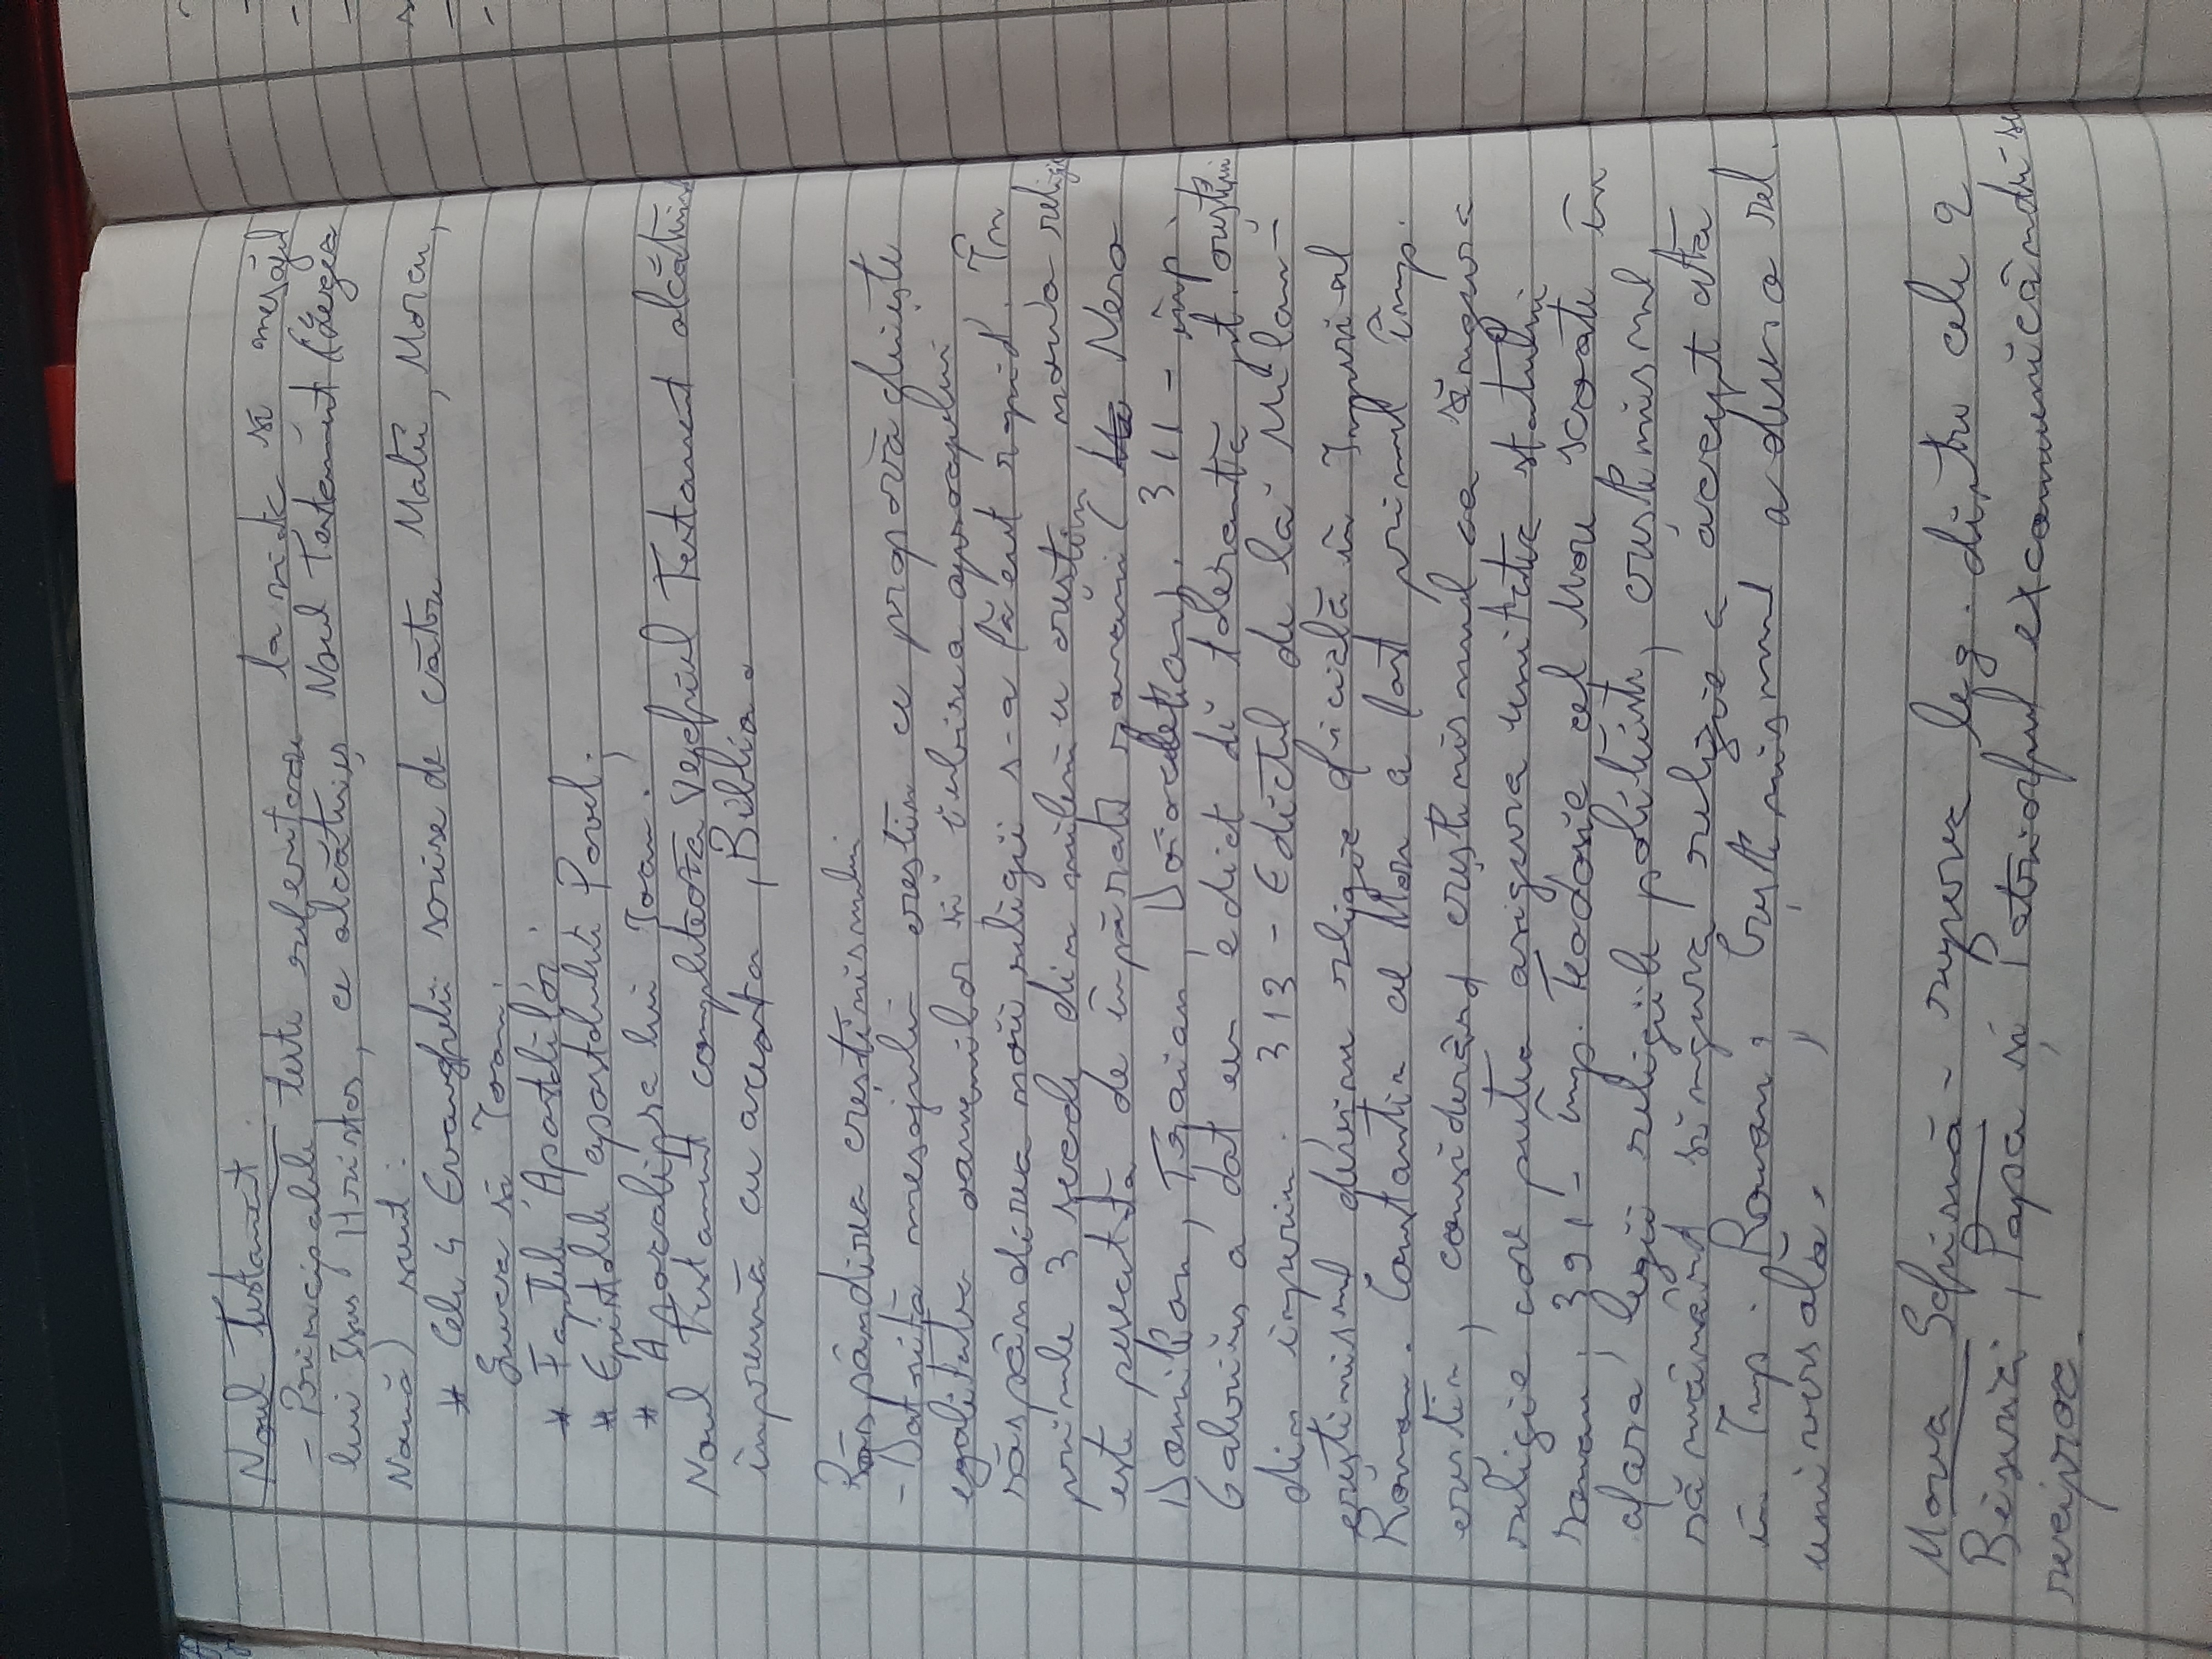 Noul Testament.
- Principalele texte referitoare la viața și mesajul
lui Isus Hristos, ce alcătuiesc Noul Testament (Legea
Nouă) sunt:
* Cele 4 Evanghelii scrise de către Matei, Marcu,
Luca și Ioan;
* Faptele Apostolilor;
* Epistolele apostolului Pavel;
* Apocalipsa lui Ioan.
Noul Testament completează Vechiul Testament alcătuind
împreună cu acesta, Biblia.
Răspândirea creștinismului
- Datorită mesajului creștin ce propovăduiește
egalitatea oamenilor și iubirea aproapelui
răspândirea noii religii s-a făcut rapid. În
primele 3 secole din mileniu creștin, noua religie
este persecutată de împărații romani (Nero
Domițian, Traian, Dioclețian). 311 - împ.
Galerius a dat un edict de toleranță pt. creștinii
din imperiu. 313 - Edictul de la Milan -
creștinismul devine religie oficială în Imperiul
Roman. Constantin cel Mare a fost primul împ.
creștin, considerând creștinismul ca singura
religie care putea asigura unitatea statului
roman. 391 - împ. Teodosie cel Mare scoate în
afara legii religiile politeiste, creștinismul
rămânând singura religie acceptată
în Imp. Roman. Creștinismul a devenit o rel.
universală.
Marea Schismă - ruperea leg. dintre cele 2
Biserici, Papa și Patriarhul excomunicându-se
reciproc.